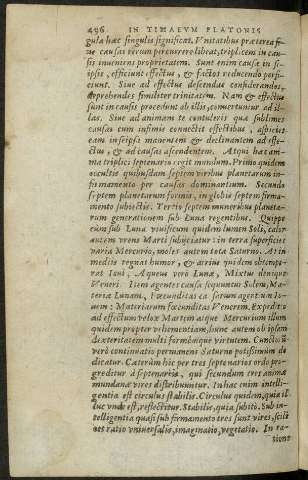 496 IN TIMAEVM PLATONIS
gula hæc singulis significat. Vnitatibus præterea si
ue causas rerum percurrere libeat, triplicem in cau
sis inuenies proprietatem. Sunt enim causæ in se
ipsis, efficiunt effectus, & factos reducendo perfi
ciunt. Siue ad effectus descendas considerandos,
deprehendes similiter trinitatem. Nam & effectus
sunt in causis procedunt ab illis, conuertuntur ad il-
las. Siue ad animam te contuleris quæ sublimes
causas cum infimis connectit effectibus, aspicies
eam in seipsa manentem & declinantem ad effe-
ctus, & ad causas ascendentem. Atqui hæc ani-
ma triplici septenario regit mundum. Primo quidem
occultis quibusdam septem viribus planetarum in
firmamento per causas dominantium. Secundo
septem planetarum formis, in globis septem firma-
mento subiectis. Tertio septem muneribus planeta-
rum generationem sub Luna regentibus. Quippe
cum sub Luna viuificum quidem lumen Soli, calor
autem vrens Marti subijciatur: in terra superficies
varia Mercurio, moles autem tota Saturno. At in
medijs regnat humor, & aerius quidem obtempe-
rat Ioui, Aqueus verò Lunæ, Mixtus denique
Veneri. Item agentes causæ sequuntur Solem, Ma-
teria Lunam, Fœcunditas causarum agentium Io-
uem: Materiarum fœcunditas Venerem. Expeditus
ad effectum velox Martem atque Mercurium illum
quidem propter vehementiam, hunc autem ob ipsam
dexteritatem multiformémque virtutem. Cunctorum
verò continuatio permanens Saturno potissimum de
dicatur. Cæterùm hîc per tres septenarios ordo pro-
greditur à septenario, qui secundum tres animæ
mundanæ vires distribuuntur. In hac enim intelli-
gentia est circulus stabilis. Circulus quidem, quia il-
luc vnde est, reflectitur. Stabilis, quia subitò. Sub in-
telligentia quasi sub firmamento tres sunt vires, scili
cet ratio vniuersalis, imaginatio, vegetatio. In ra-
tione